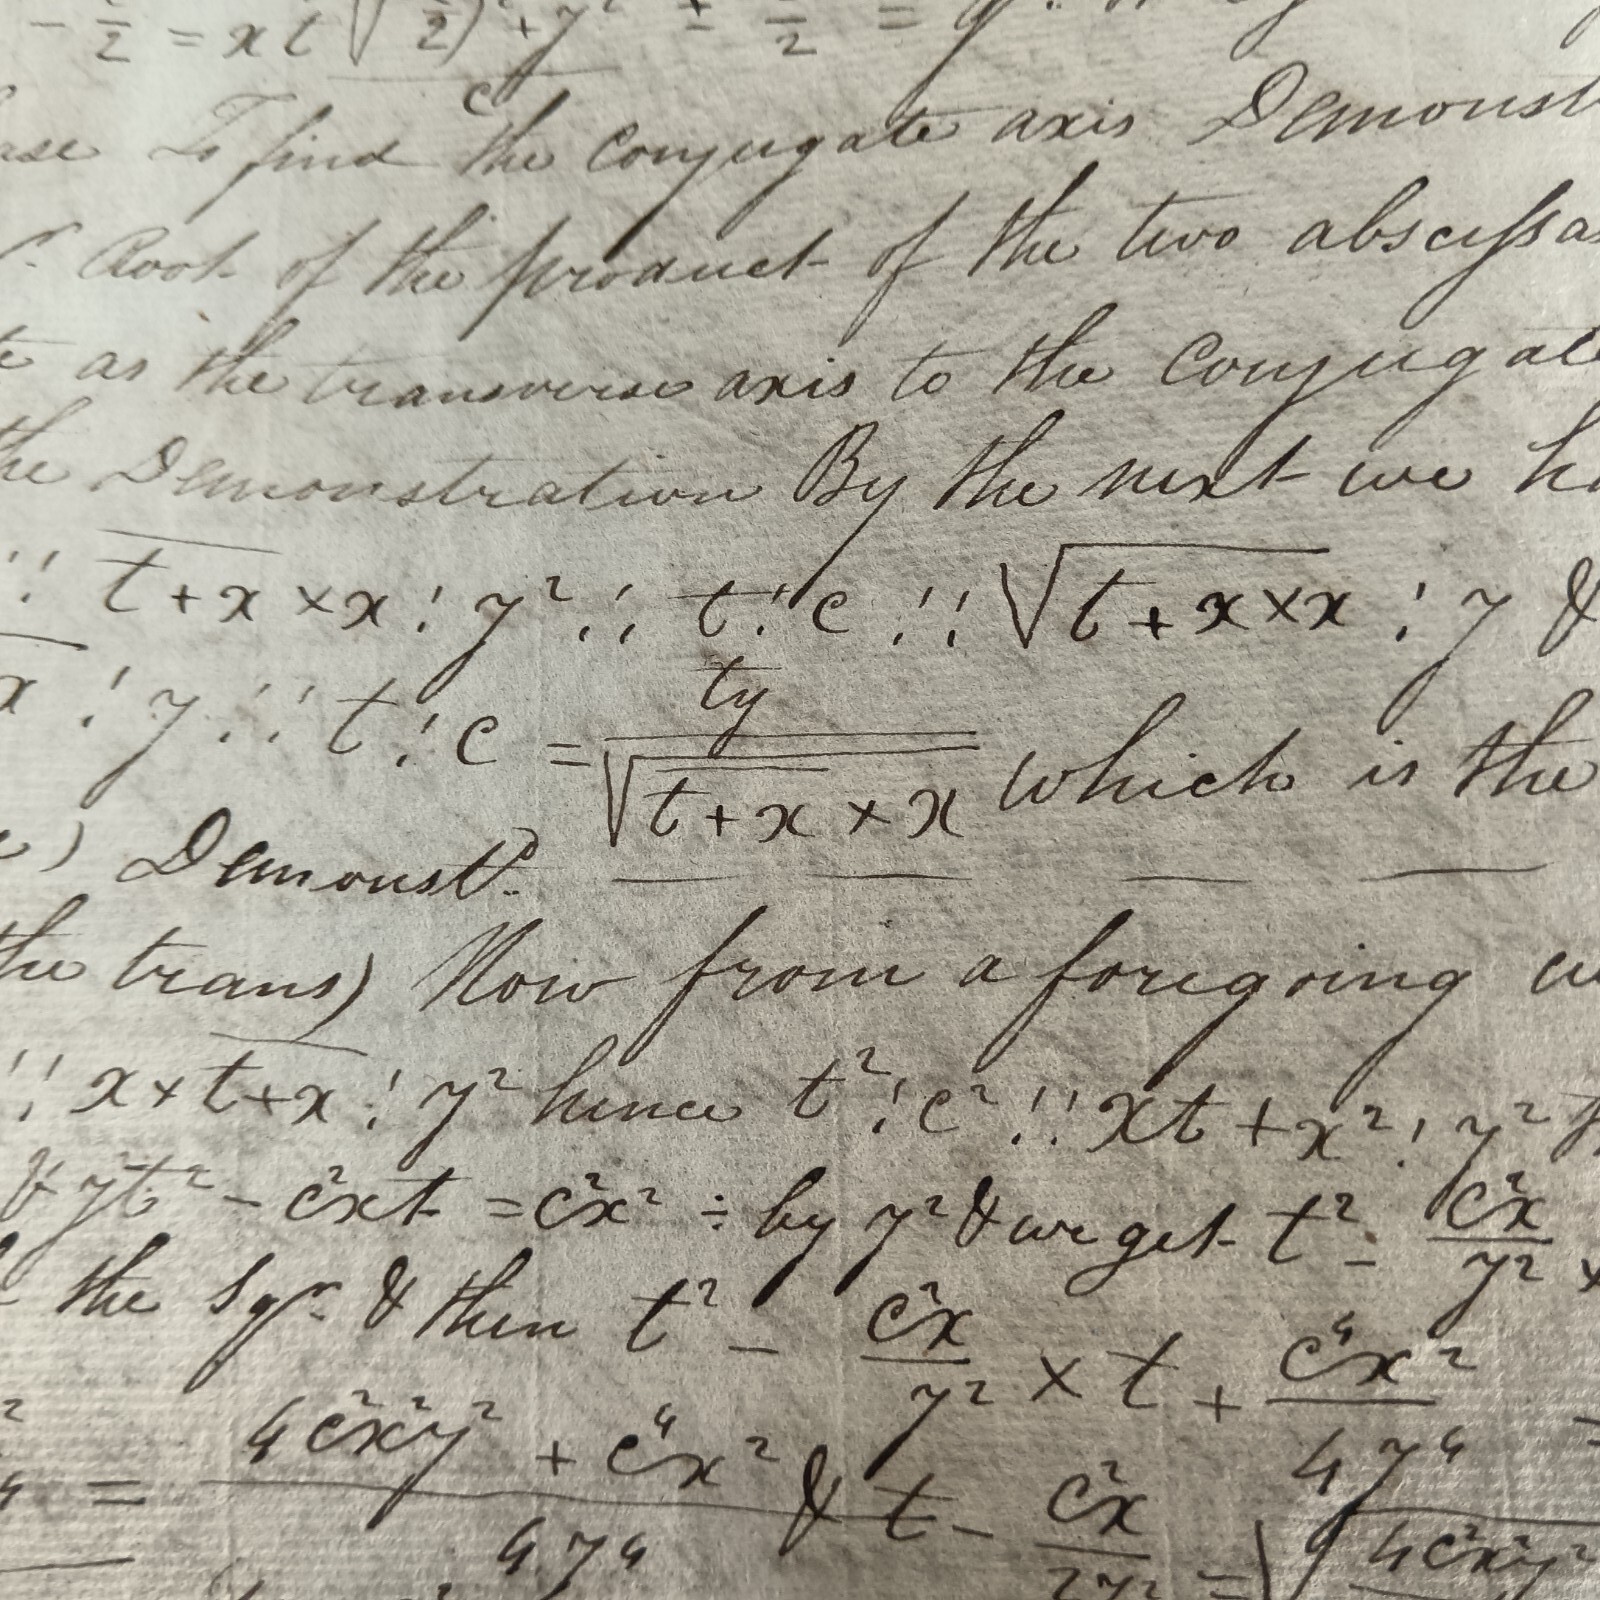 - /2 = x t √ /2)² + y² ± /2 =
c
ase To find the conjugate axis Demonst
r. Root of the product of the two abscissas
te as the transverse axis to the Conjugate
the Demonstration By the next we ha
:: t + x × x : y² :: t : c :: √t + x × x : y &
x : y :: t : c = ty / √t + x × x which is the
e) Demonst.
the trans) Now from a foregoing
:: x × t + x : y² hence t² : c² :: xt + x² : y²
& y²t² - c²xt = c²x² ÷ by y² & we get t² - c²x / y² ×
the Sqr. & then t² - c²x / y² × t + c⁴x² / 4y⁴ =
= 4c²x²y² + c⁴x² / 4y⁴ & t - c²x / 2y² = √4c²x²y²